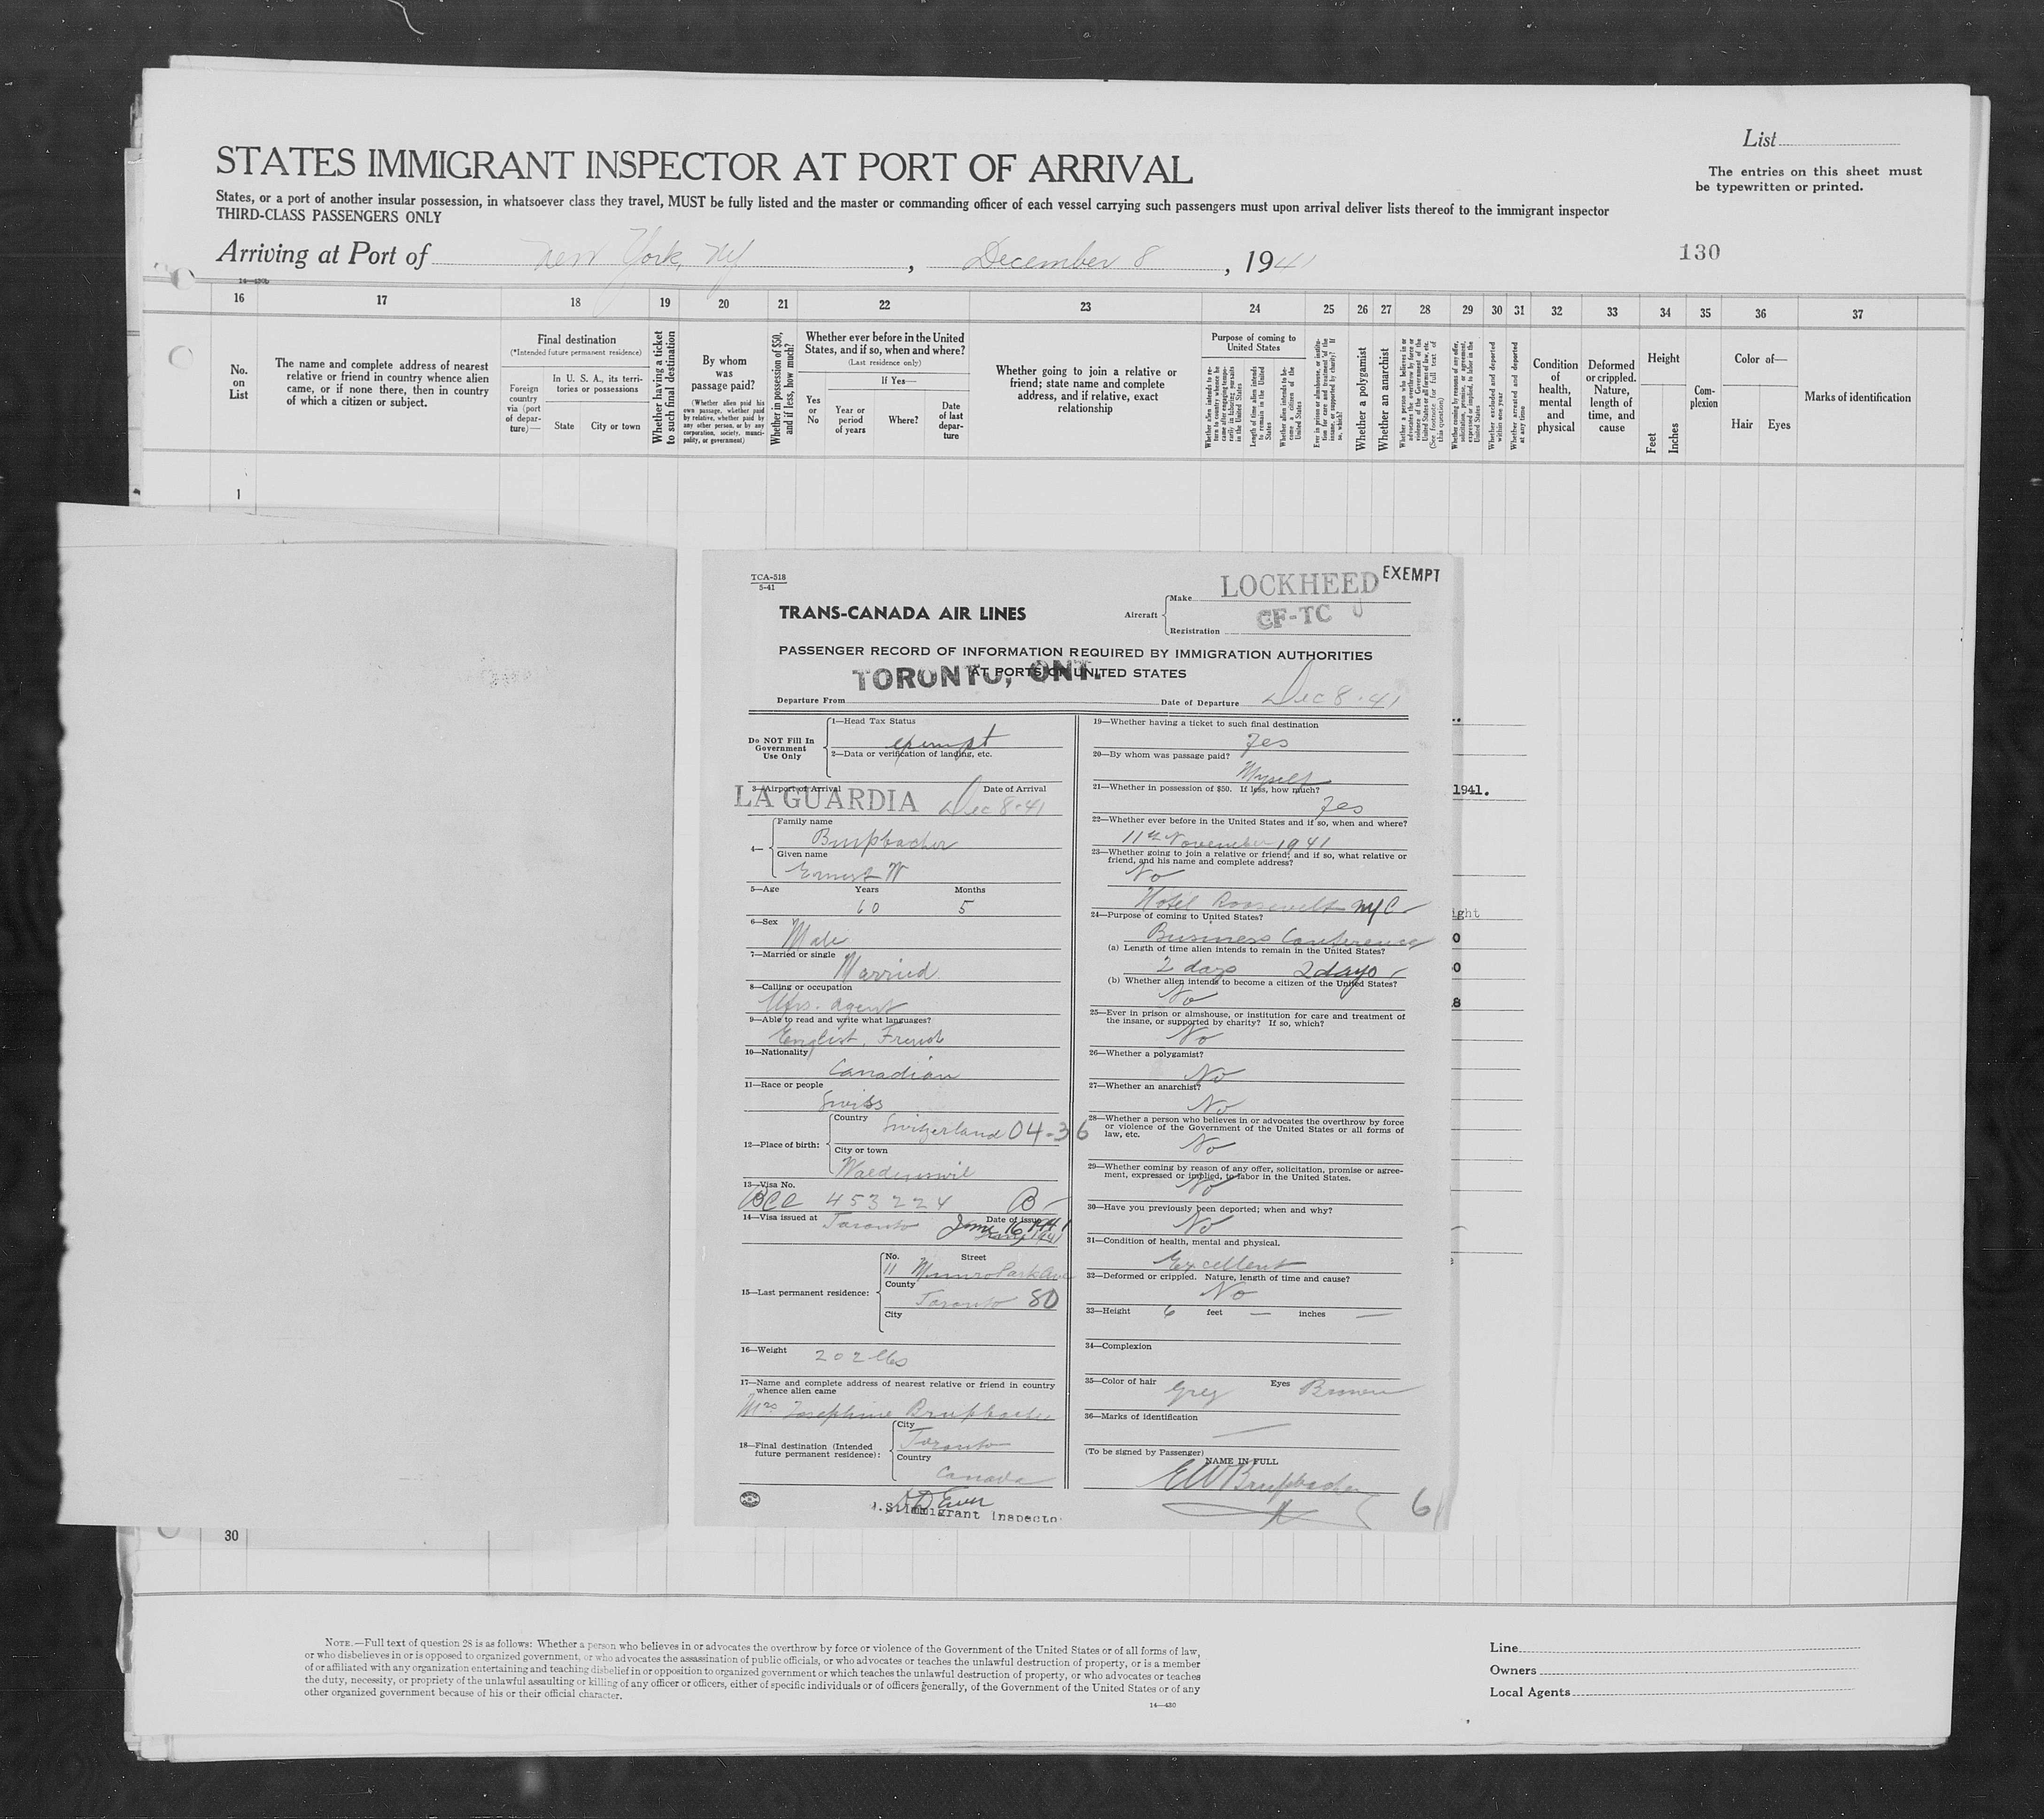 List
STATES IMMIGRANT INSPECTOR AT PORT OF ARRIVAL
The entries on this sheet must be typewritten or printed.
States, or a port of another insular possession, in whatsoever class they travel, MUST be fully listed and the master or commanding officer of each vessel carrying such passengers must upon arrival deliver lists thereof to the immigrant inspector
THIRD-CLASS PASSENGERS ONLY
Arriving at Port of New York, NY, December 8, 1941
130
14—430b
16 17 18 19 20 21 22 23 24 25 26 27 28 29 30 31 32 33 34 35 36 37
No. on List
The name and complete address of nearest relative or friend in country whence alien came, or if none there, then in country of which a citizen or subject.
Final destination
(*Intended future permanent residence)
Foreign country via (port of departure)—
In U. S. A., its territories or possessions
State City or town
Whether having a ticket to such final destination
By whom was passage paid?
(Whether alien paid his own passage, whether paid by relative, whether paid by any other person, or by any corporation, society, municipality, or government)
Whether in possession of $50, and if less, how much?
Whether ever before in the United States, and if so, when and where?
(Last residence only)
If Yes—
Yes or No
Year or period of years
Where?
Date of last departure
Whether going to join a relative or friend; state name and complete address, and if relative, exact relationship
Purpose of coming to United States
Whether alien intends to return to country whence he came after engaging temporarily in laboring pursuits in the United States
Length of time alien intends to remain in the United States
Whether alien intends to become a citizen of the United States
Ever in prison or almshouse, or institution for care and treatment of the insane, or supported by charity? If so, which?
Whether a polygamist
Whether an anarchist
Whether a person who believes in or advocates the overthrow by force or violence of the Government of the United States or all forms of law, etc. (See footnote for full text of this question)
Whether coming by reasons of any offer, solicitation, promise, or agreement, expressed or implied, to labor in the United States
Whether excluded and deported within one year
Whether arrested and deported at any time
Condition of health, mental and physical
Deformed or crippled. Nature, length of time, and cause
Height
Feet
Inches
Complexion
Color of—
Hair Eyes
Marks of identification
1
TCA-518
5-41
TRANS-CANADA AIR LINES
Aircraft
Make LOCKHEED
EXEMPT
Registration CF-TC J
PASSENGER RECORD OF INFORMATION REQUIRED BY IMMIGRATION AUTHORITIES
AT PORTS OF UNITED STATES
Departure From TORONTO, ONT.
Date of Departure Dec 8-41
Do NOT Fill In
Government
Use Only
1—Head Tax Status
exempt
2—Data or verification of landing, etc.
3—Airport of Arrival
Date of Arrival
LA GUARDIA Dec 8-41
4—
Family name
Brupbacher
Given name
Ernest W
5—Age Years Months
60 5
6—Sex
Male
7—Married or single
Married
8—Calling or occupation
Mfrs. agent
9—Able to read and write what languages?
English, French
10—Nationality
Canadian
11—Race or people
Swiss
12—Place of birth:
Country
Switzerland 04-36
City or town
Waedenswil
13—Visa No.
BCC 453224 B-
14—Visa issued at Toronto
Date of issue
June 16 1941
15—Last permanent residence:
No. Street
11 Munro Park Ave
County
Toronto 80
City
16—Weight 202 lbs
17—Name and complete address of nearest relative or friend in country whence alien came
Mrs Josephine Brupbacher
18—Final destination (Intended future permanent residence):
City
Toronto
Country
Canada
Immigrant Inspecto
19—Whether having a ticket to such final destination
Yes
20—By whom was passage paid?
Myself
21—Whether in possession of $50. If less, how much?
Yes
22—Whether ever before in the United States and if so, when and where?
11th November 1941
23—Whether going to join a relative or friend; and if so, what relative or friend, and his name and complete address?
No
Hotel Roosevelt NYC
24—Purpose of coming to United States?
Business Conference
(a) Length of time alien intends to remain in the United States?
2 days 2 days
(b) Whether alien intends to become a citizen of the United States?
No
25—Ever in prison or almshouse, or institution for care and treatment of the insane, or supported by charity? If so, which?
No
26—Whether a polygamist?
No
27—Whether an anarchist?
No
28—Whether a person who believes in or advocates the overthrow by force or violence of the Government of the United States or all forms of law, etc.
No
29—Whether coming by reason of any offer, solicitation, promise or agreement, expressed or implied, to labor in the United States.
No
30—Have you previously been deported; when and why?
No
31—Condition of health, mental and physical.
Excellent
32—Deformed or crippled. Nature, length of time and cause?
No
33—Height 6 feet — inches —
34—Complexion
35—Color of hair Grey Eyes Brown
36—Marks of identification
—
(To be signed by Passenger)
NAME IN FULL
EW Brupbacher
6
1941.
ight
0
0
8
30
NOTE.—Full text of question 28 is as follows: Whether a person who believes in or advocates the overthrow by force or violence of the Government of the United States or of all forms of law,
or who disbelieves in or is opposed to organized government, or who advocates the assassination of public officials, or who advocates or teaches the unlawful destruction of property, or is a member
of or affiliated with any organization entertaining and teaching disbelief in or opposition to organized government or which teaches the unlawful destruction of property, or who advocates or teaches
the duty, necessity, or propriety of the unlawful assaulting or killing of any officer or officers, either of specific individuals or of officers generally, of the Government of the United States or of any
other organized government because of his or their official character.
14—430
Line
Owners
Local Agents